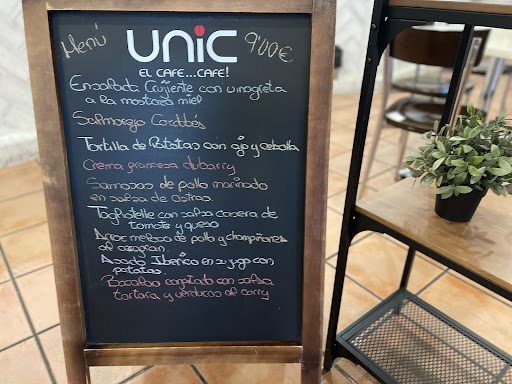 Menú
UNiC
9'00€
EL CAFE...CAFE!
Ensalada Crujiente con vinagreta
a la mostaza miel
Salmorejo Cordobés
Tortilla de Patatas con ajo y cebolla
Crema francesa dubarry
Samosas de pollo marinado
en salsa de ostras.
Tagliatelle con salsa casera de
tomate y queso
Arroz meloso de pollo y champiñones
al azafran.
Asado Iberico en su jugo con
patatas.
Bacalao con salsa
tartara y verduras al curry